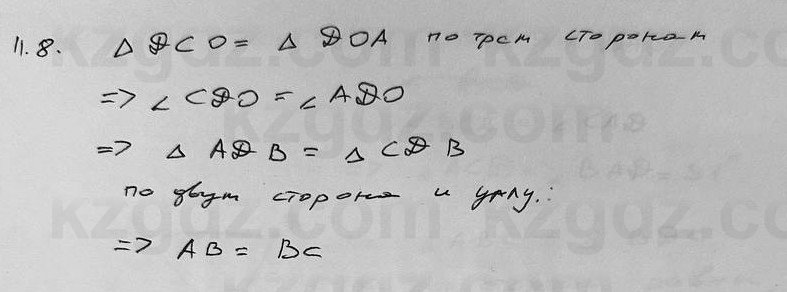 11.8. △ DCO = △ DOA по трем сторонам
=> ∠ CDO = ∠ ADO
=> △ ADB = △ CDB
по двум сторона и углу.:
=> AB = BC
kzgdz.com
kzgdz.com
kzgdz.com